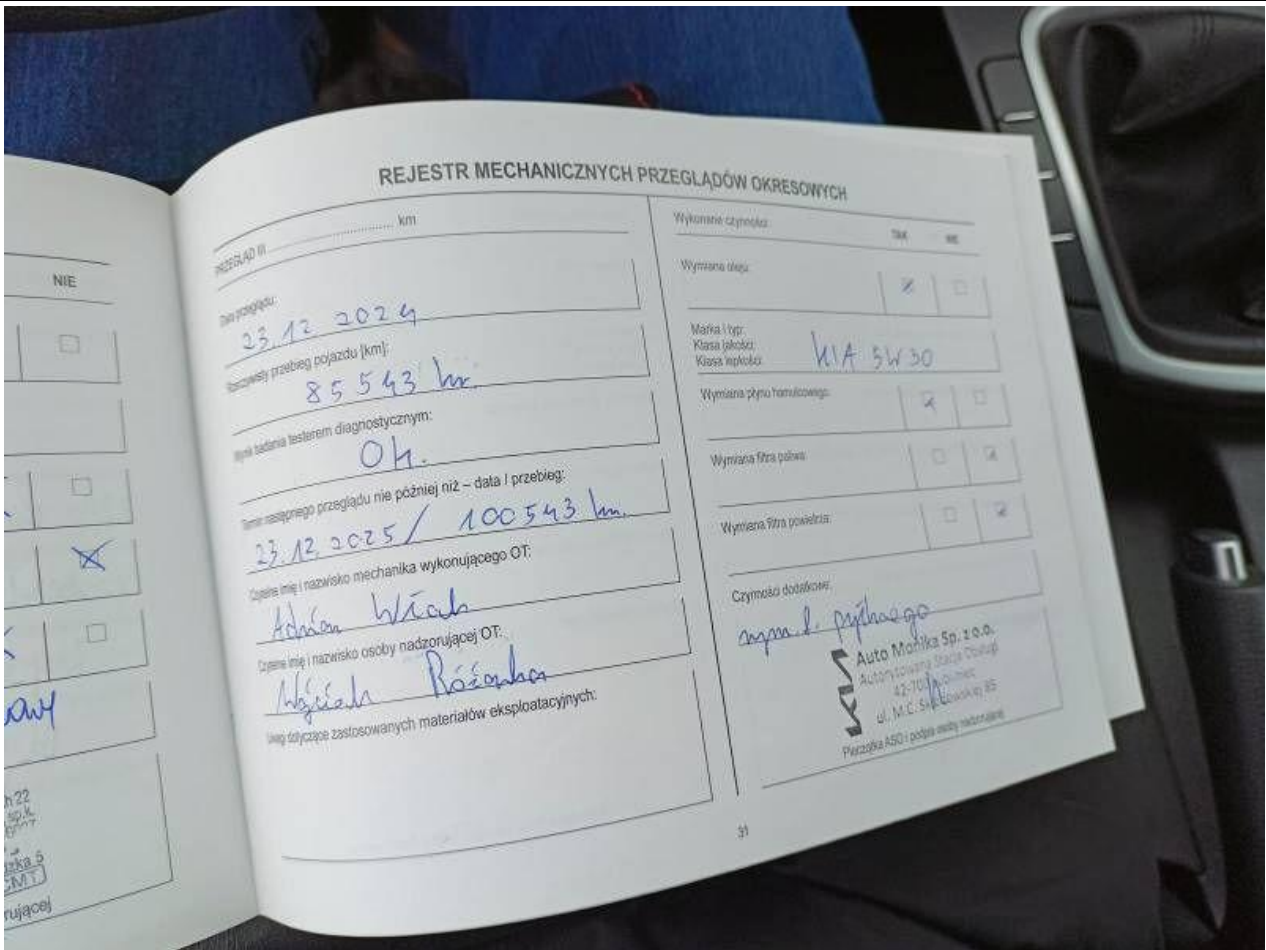 REJESTR MECHANICZNYCH PRZEGLĄDÓW OKRESOWYCH
NIE
PRZEGLĄD III .......................... km
Data przeglądu:
23.12 2024
Rzeczywisty przebieg pojazdu [km]:
85 543 km.
Wynik badania testerem diagnostycznym:
Ok.
Termin następnego przeglądu nie później niż – data i przebieg:
23.12.2025 / 100543 km.
Czytelne imię i nazwisko mechanika wykonującego OT:
Adrian
Czytelne imię i nazwisko osoby nadzorującej OT:
Wojciech
Uwagi dotyczące zastosowanych materiałów eksploatacyjnych:
Wykonane czynności:
TAK NIE
Wymiana oleju:
Marka i typ:
Klasa jakości:
Klasa lepkości:
KIA 5W30
Wymiana płynu hamulcowego:
Wymiana filtra paliwa:
Wymiana filtra powietrza:
Czynności dodatkowe:
wym. f. pyłkowego
Auto Monika Sp. z o.o.
Autoryzowana Stacja Obsługi
42-700
ul. M.C. 85
Pieczątka ASO i podpis osoby nadzorującej
31
h 22
sp.k.
5
rującej